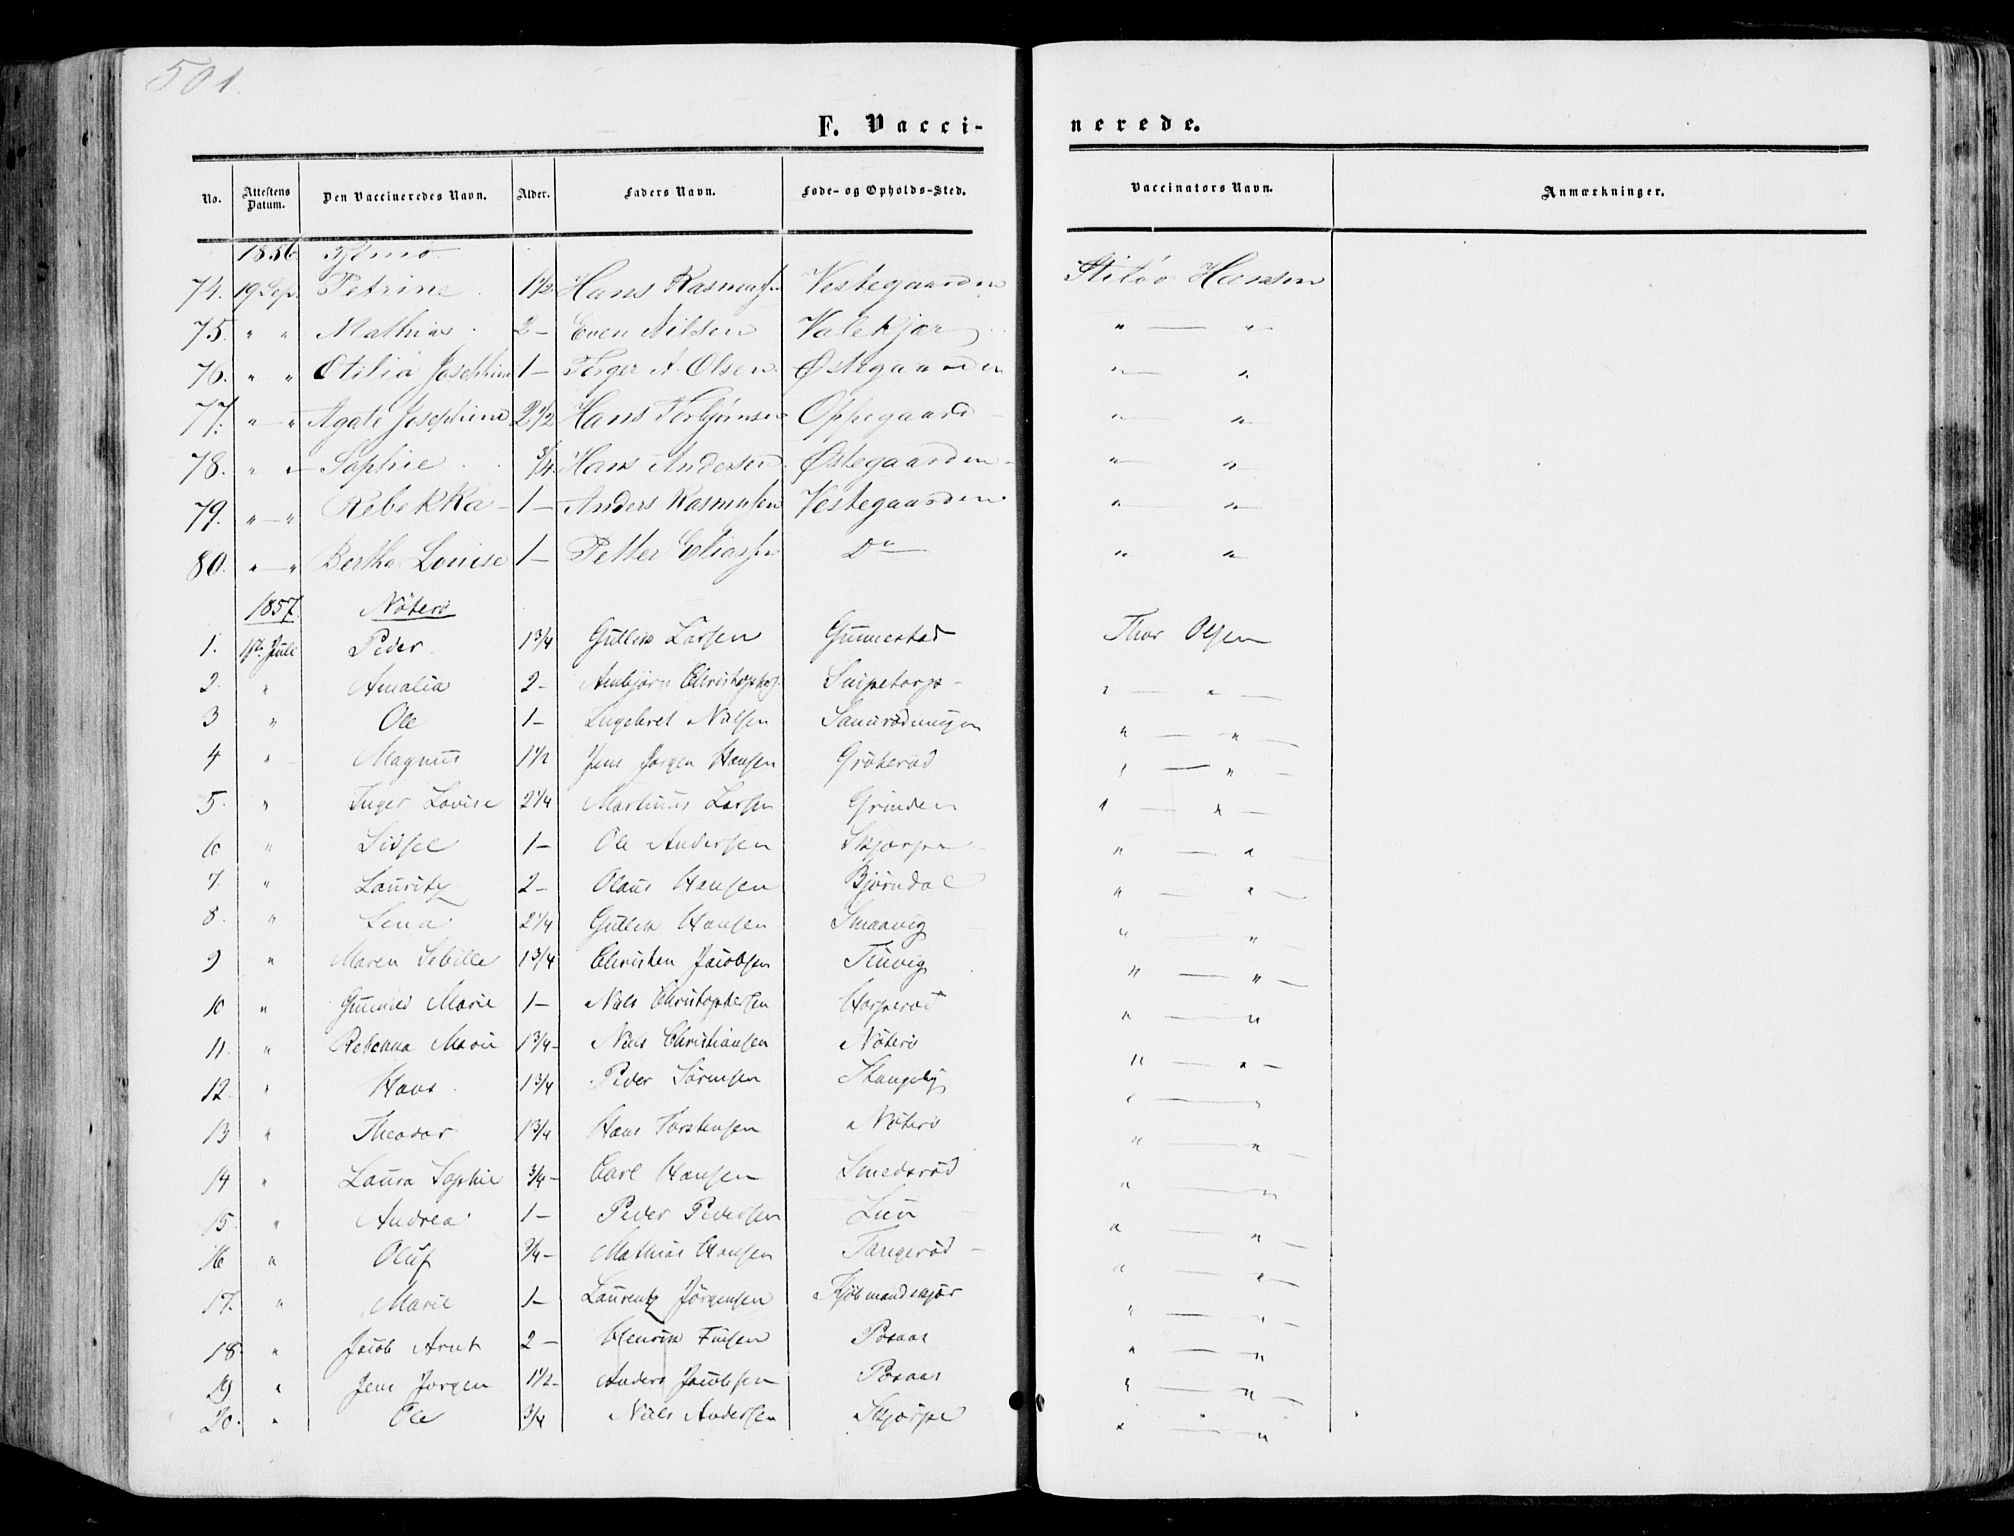 501.
F. Vacci- nerede.
No. Attestens Datum. Den Vaccineredes Navn. Alder. Faders Navn. Føde- og Opholds-Sted. Vaccinators Navn. Anmærkninger.
1856. Tjømø.
74. 19 Sep. Petrine 1 1/2 Hans Rasmussen Vestegaarden Hansen
75. " " Mathias 2 – Even Nilsen Valekjær " — "
76. " – " Otilia Josephine 1 – Torger A. Olsen Østegaarden " "
77. " – " Agate Josephine 2 1/2 Hans Torbjørnsen Oppegaard " "
78. " – " Sophie 3/4 Hans Andersen Østegaarden " "
79. " – " Rebekka – 1 – Anders Rasmussen Vestegaarden " "
80. " – " Bertha Louise 1 – Petter Eliassen Do " "
1857. Nøterø
1. 1ste Juli Peder 1 3/4 Gullik Larsen Gunnestad Thor Olsen
2. " Amalia 2 – Anbjørn Christophers. Snipetorp – " — " —
3 " Ole 1 – Engebret Nilsen " — " —
4 " Magnus 1 1/2 Jens Jørgen Hansen Grøterød " — " —
5. " Inger Lovise 2 1/4 Martinus Larsen Grinden " — " —
6 " Sissel 1 – Ole Andersen Skjærpe " — " —
7. " Lauritz 2 – Olaus Hansen Bjørndal " — " —
8. " Lena 2 1/4 Gullik Hansen Smaavig " — " —
9 " Maren Sibille 1 3/4 Christen Jacobsen Tinvig " — " —
10 " Gunnild Marie 1 – Niels Christophersen Horperød " — "
11. " Rebekka Marie 1 3/4 – Niels Christiansen Nøterø " — " –
12. " Hans 1 3/4 Peder Sørensen Skangeby " — "
13 " Theodor 1 3/4 Hans Torstensen " Nøterø " — "
14 " Laura Sophie 3/4 – Carl Hansen Smedsrød " — "
15. " Andrea 1 – Peder Pedersen Lun " — " –
16 " Oluf 3/4 – Mathias Hansen Tangerød – " — " –
17. " Marie 1 – Laurentz Jørgensen Kjøbmandskjær " — " –
18. " Jacob Arnt 2 – Henrik Finsen Posaas " — "
19 " Jens Jørgen 1 1/2 – Anders Jacobsen Posaas " — " –
20. " Ole 3/4 Niels Andersen Skjærpe " — "